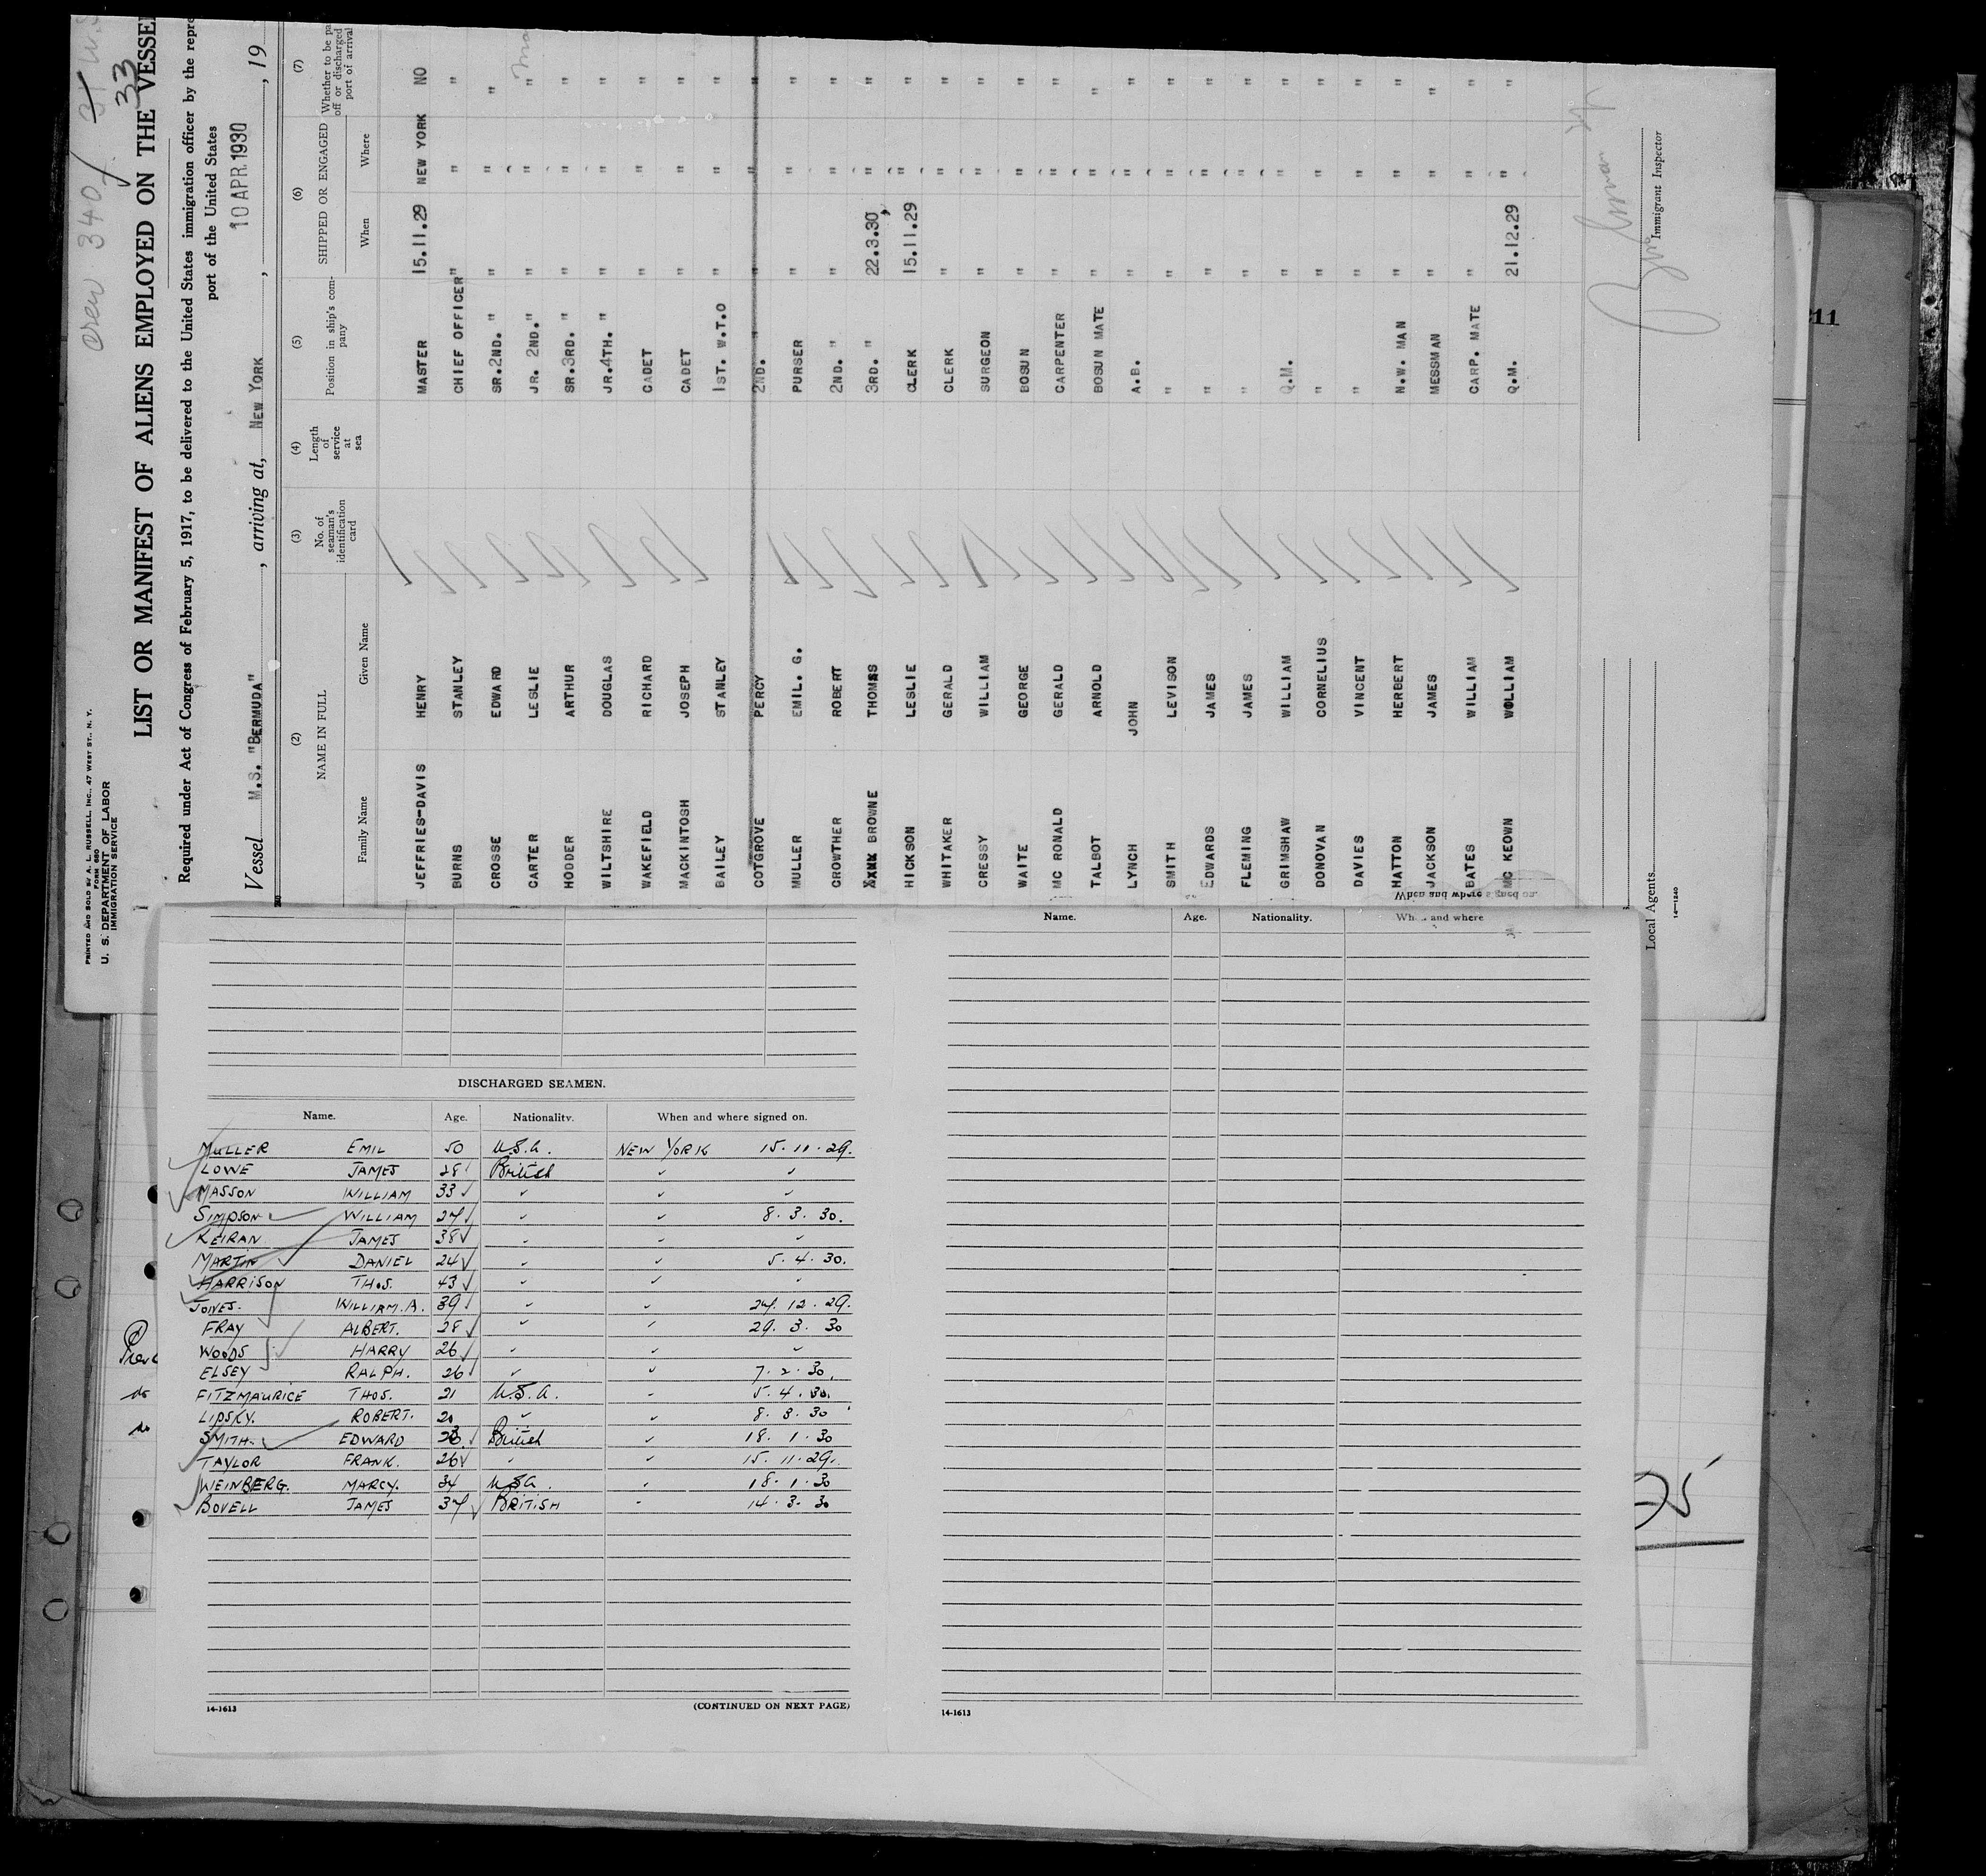 crew 340/ 31
33
PRINTED AND SOLD BY A. L. RUSSELL, INC., 47 WEST ST., N. Y.
FORM 680
U. S. DEPARTMENT OF LABOR
IMMIGRATION SERVICE
LIST OR MANIFEST OF ALIENS EMPLOYED ON THE VESSEL
Required under Act of Congress of February 5, 1917, to be delivered to the United States immigration officer by the repre
port of the United States
Vessel M.S. "BERMUDA", arriving at, NEW YORK, 10 APR. 1930, 19
(2) (3) (4) (5) (6) (7)
NAME IN FULL No. of seaman's identification card Length of service at sea Position in ship's company SHIPPED OR ENGAGED Whether to be pa off or discharged port of arrival
Family Name Given Name When Where
JEFFRIES-DAVIS HENRY MASTER 15.11.29 NEW YORK NO
BURNS STANLEY CHIEF OFFICER " " "
CROSSE EDWARD SR.2ND. " " " "
CARTER LESLIE JR. 2ND." " " "
HODDER ARTHUR SR.3RD. " " " "
WILTSHIRE DOUGLAS JR.4TH. " " " "
WAKEFIELD RICHARD CADET " " "
MACKINTOSH JOSEPH CADET " " "
BAILEY STANLEY 1ST. W.T.O " " "
COTGROVE PERCY 2ND. " " " "
MULLER EMIL. G. PURSER " " "
CROWTHER ROBERT 2ND. " " " "
BROWNE THOMAS 3RD. " 22.3.30, " "
HICKSON LESLIE CLERK 15.11.29 " "
WHITAKER GERALD CLERK " " "
CRESSY WILLIAM SURGEON " " "
WAITE GEORGE BOSUN " " "
MC RONALD GERALD CARPENTER " " "
TALBOT ARNOLD BOSUN MATE " " "
LYNCH JOHN A.B. " " "
SMITH LEVISON " " " "
EDWARDS JAMES " " " "
FLEMING JAMES " " " "
GRIMSHAW WILLIAM Q.M. " " "
DONOVAN CORNELIUS " " " "
DAVIES VINCENT " " " "
HATTON HERBERT N.W. MAN " " "
JACKSON JAMES MESSMAN " " "
BATES WILLIAM CARP. MATE " " "
MC KEOWN WOLLIAM Q.M. 21.12.29 " "
Immigrant Inspector
Local Agents
14—1240
211
When and where signed on.
Name. Age. Nationality. When and where
DISCHARGED SEAMEN.
Name. Age. Nationality. When and where signed on.
MULLER EMIL 50 U.S.A. NEW YORK 15.11.29.
LOWE JAMES 28 British " "
MASSON WILLIAM 33 " " "
SIMPSON WILLIAM 27 " " 8.3.30.
KEIRAN JAMES 38 " " "
MARTIN DANIEL 24 " " 5.4.30.
HARRISON THOS. 43 " " "
JONES. WILLIAM.A. 39 " " 27.12.29.
FRAY ALBERT. 28 " " 29.3.30
WOODS HARRY 26 " " "
ELSEY RALPH. 26 " " 7.2.30.
FITZMAURICE THOS. 21 U.S.A. " 5.4.30.
LIPSKY. ROBERT. 20 " " 8.3.30
SMITH. EDWARD British " 18.1.30
TAYLOR FRANK. 26 " " 15.11.29.
WEINBERG. MARCY. 34 USA. " 18.1.30
BOVELL JAMES 37 BRITISH " 14.3.30
14-1613
(CONTINUED ON NEXT PAGE)
14-1613